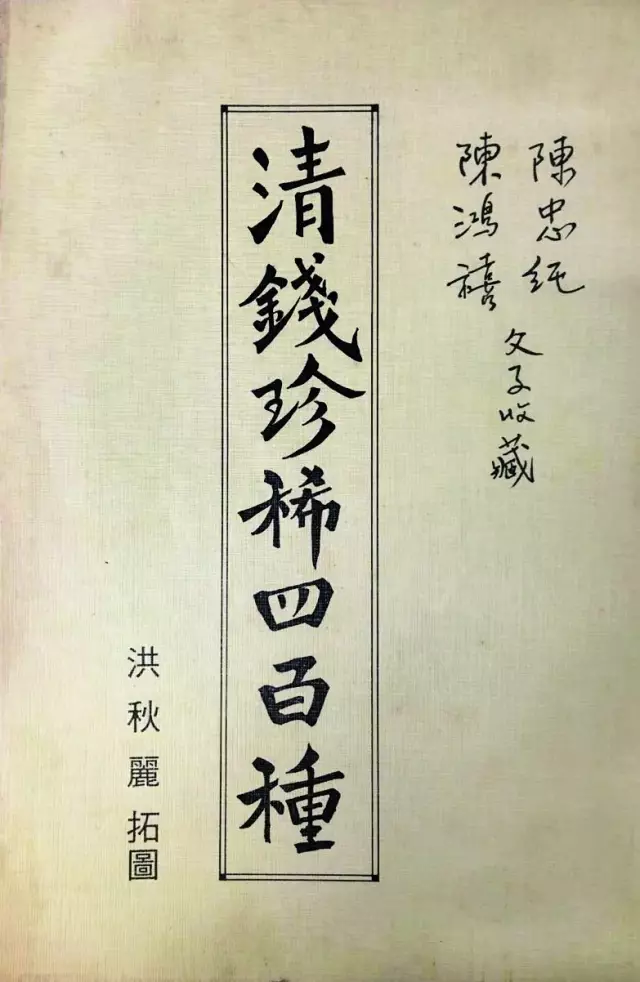 陳忠純
陳鴻禧
父子收藏
清錢珍稀四百種
洪秋麗拓圖